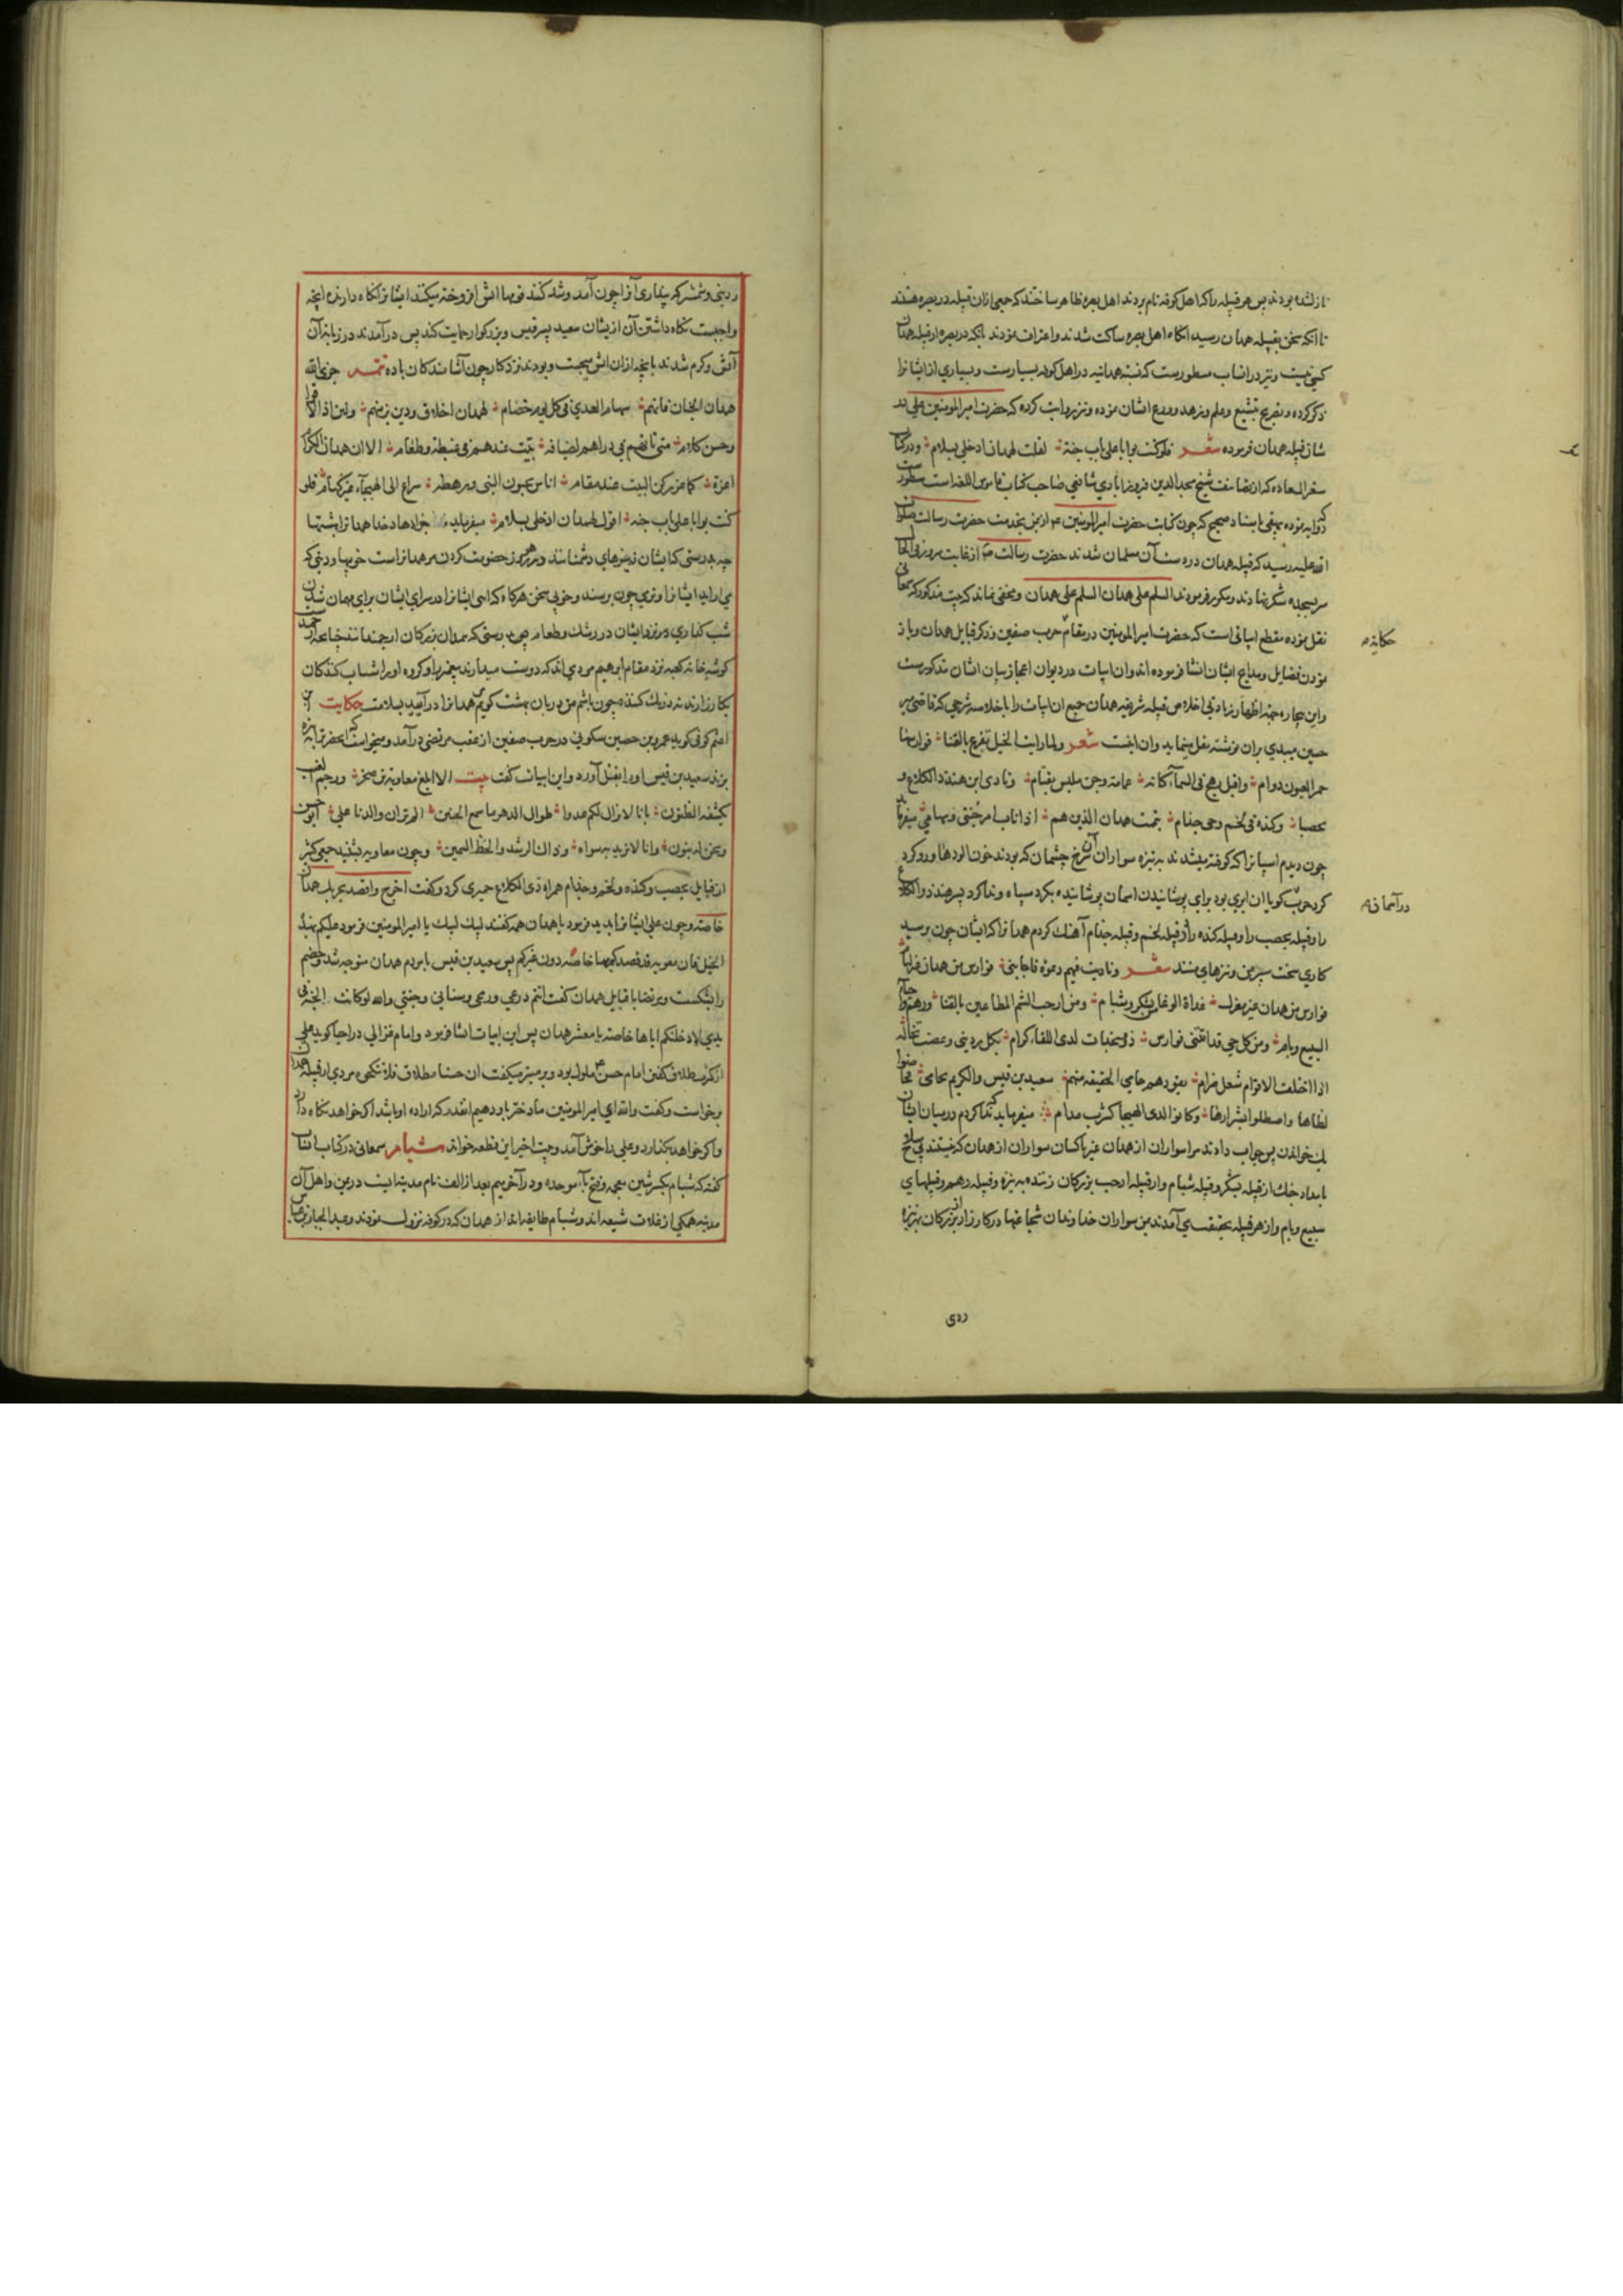 نازل شده بودند پس هر قبیله را که اهل کوفه نام بردند اهل بصره ظاهر ساختند که جمعی ازان قبیله در بصره هستند
تا انکه سخن بقبیله همدان رسید انکاه اهل بصره ساکت شدند و اعتراف نمودند بانکه در بصره از قبیله همدان
کسی نیست و نیز در انساب مسطورست که نسبه همدانیه در اهل کوفه بسیارست و بسیاری از ایشانرا
ذکر کرده و تصریح بتشیع و علم و زهد و ورع ایشان نموده و نیز روایت کرده که حضرت امیر المومنین علی در
شان قبیله همدان فرموده شعر فلو کنت بوابا علی باب جنة لقلت لهمدان ادخلی بسلام و در کتاب
سفر السعاده که از تصانیف شیخ مجد الدین فیروزابادی شافعی صاحب کتاب قاموس اللغه است مسطور
نموده بیهقی باسناد صحیح که چون کتابت حضرت امیر المومنین از یمن بخدمت حضرت رسالت صلوات
الله علیه رسید که قبیله همدان مسلمان شدند حضرت رسالت از غایت
سر بسجده شکر نهادند و مکرر فرمودند السلم علی همدان السلم علی همدان و مخفی نماند که بیت مذکور که سمعانی
نقل نموده مقطع ابیاتی است که حضرت امیر المومنین در مقام حرب صفین و ذکر قبایل همدان و باز
حکایة
نمودن فضایل و مدایح ایشان انشا فرموده اند و ان ابیات در دیوان اعجاز بیان ایشان مذکورست
و این بیچاره جهة اظهار زیادتی اخلاص قبیله شریفه همدان جمیع ان ابیات را با خلاصه شرحی که قاضی میر
حسین میبدی بران نوشته نقل مینماید و ان اینست شعر و لما رایت الخیل تقرع بالقنا فوارسها
حمر العیون دوام و اقبل رهج فی السماء کانه غمامة دجن ملبس بقتام و نادی ابن هند ذا الکلاع و
یحصبا وکندة فی لخم و حی جذام تیممت همدان الذین هم هم اذا ناب امر جنتی و سهامی میفرماید
چون دیدم اسپانرا که کوفته میشدند به نیزه سواران ان سرخ چشمان که بودند خون الودها و رو کرد
کرد حرب کویا ان ابری بود برای پوشانیدن اسمان پوشانیده بکرد سیاه و ندا کرد پسر هند ذو الکلاع
در آسمان
را و قبیله یحصب را و قبیله کنده را و قبیله لخم و قبیله جذام آهنک کردم همدانرا که ایشان چون برسید
کاری سخت سپر من و نیزهای منند شعر و نادیت فیهم دعوة فاجابنی فوارس من همدان غیر لئام
فوارس من همدان غیر عزل غداة الوغا من یشکر و شبام و من ارحب الشم المطاعین بالقنا و رهم و احیاء
السبیع و یام و من کل حی قد اتتنی فوارس ذوو نجدات لدی اللقاء کرام بکل ردینی و عضب تخاله
اذا اختلف الاقوام شعل ضرام یقودهم حامی الحقیقه منهم سعید بن قیس و الکریم یحامی فخاضوا
لظاها و اصطلوا بشرارها و کانوا لدی الهیجا کشرب مدام میفرماید که ندا کردم در میان ایشان
خواندن پس جواب دادند مرا سواران از همدان غیر ناکسان سواران از همدان که نیستند بی سلاح
بامداد جنک از قبیله یشکر و قبیله شبام و از قبیله ارحب بزرکان زننده به نیزه و قبیله رهم و قبیلهای
سبیع و یام و از هر قبیله بتحقیق می آمدند بمن سواران خداوندان شجاعتها در کارزار از بزرکان بنیزه
ردی
ردینی و شمشیر که پنداری آنرا چون آمد و شد کنند قومها اتش افروخته میکشد ایشانرا نکاه دارنده انچه
واجبست نکاه داشتن آن از یشان سعید پسر قیس و بزرکوار حمایت کند پس درآمدند در زبانه آن
آتش و کرم شدند بانچه ازان اتش میجست و بودند نزد کارزار چون آشامندکان باده تتمه جزی الله
همدان الجنان فانهم سهام العدی فی کل یوم خصام لهمدان اخلاق و دین یزینهم و لین اذا لاقوا
و حسن کلام متی تاتهم فی دراهم لضیافة تبت عندهم فی غبطة و طعام الا ان همدان الکرام
اعزة کما عز رکن البیت عند مقام اناس یحبون النبی و رهطه سراع الی الهیجاء غیر کهام فلو
کنت بوابا علی باب جنة اقول لهمدان ادخلی بسلام میفرماید جزا دهاد خدا همدانرا بهشتها
چه بدرستی که ایشان تیرهای دشمنانند در هر روز خصومت کردن مر همدانراست خویها و دینی که
می اراید ایشانرا و نرمی چون برسند و خوبی سخن هرکاه که ائی ایشانرا در سرای ایشان برای مهمان شدن
شب کذاری در نزد ایشان در رشک و طعام بدرستی که همدان بزرکان ارجمندانند چنانچه ارجمندست
کوشه خانه کعبه نزد مقام ابرهیم مردمی اند که دوست میدارند پیغمبر را و کروه او را شتاب کنندکان
بکارزارند نه درنک کننده چون باشم من دربان بهشت کویم همدانرا درآیید بسلامت حکایت ابن
اعثم کوفی کوید عمرو بن حصین سکونی در حرب صفین از عقب مرتضی درآمد و میخواست که انحضرترا نیزه
بزند سعید بن قیس او را بقتل آورد و این ابیات کفت بیت الا ابلغ معاویة بن صخر و رجم الغیب
یکشفه الظنون بانا لا نزال لکم عدوا طوال الدهر ما سمع الحنین الم تران والدنا علی ابو حسن
و نحن له بنون و انا لا نرید به سواه و ذاک الرشد و الحظ السمین و چون معاویه بشنید جمعی کثیر
از قبایل یحصب و کنده و لخم و جذام همراه ذی الکلاع حمیری کرد و کفت اخرج و اقصد بحربک همدان
خاصه و چون علی ایشانرا بدید فرمود یا همدان همه کفتند لبیک لبیک یا امیر المومنین فرمود علیکم بهذه
الخیل فان معویه قد قصدکم بها خاصه دون غیرکم پس سعید بن قیس با مردم همدان متوجه شد و خصم
را بشکست و مرتضا با قبایل همدان کفت انتم درعی و رمحی و سنانی و جنتی والله لو کانت الجنة فی
یدی لادخلتکم ایاها خاصة یا معشر همدان پس این ابیات انشا فرمود و امام غزالی در احیا کوید علی
از کثرت طلاق کفتن امام حسن ملول بود و بر منبر میکفت ان حسنا مطلاق فلا تنکحوه مردی از قبیله همدان
برخواست و کفت والله ای امیر المومنین ما دختر باو دهیم انقدر که اراده او باشد اکر خواهد نکاه دارد
و اکر خواهد بکذارد و علی را خوش آمد و بیت اخیر این قطعه خواند شبام سمعانی در کتاب انساب
کفته که شبام بکسر شین معجمه و فتح باء موحده و در آخر میم بعد از الف نام مدینه ایست در یمن و اهل آن
مدینه همکی از غلات شیعه اند و شبام طایفه اند از همدان که در کوفه نزول نمودند و عبد الجبار بن عباس